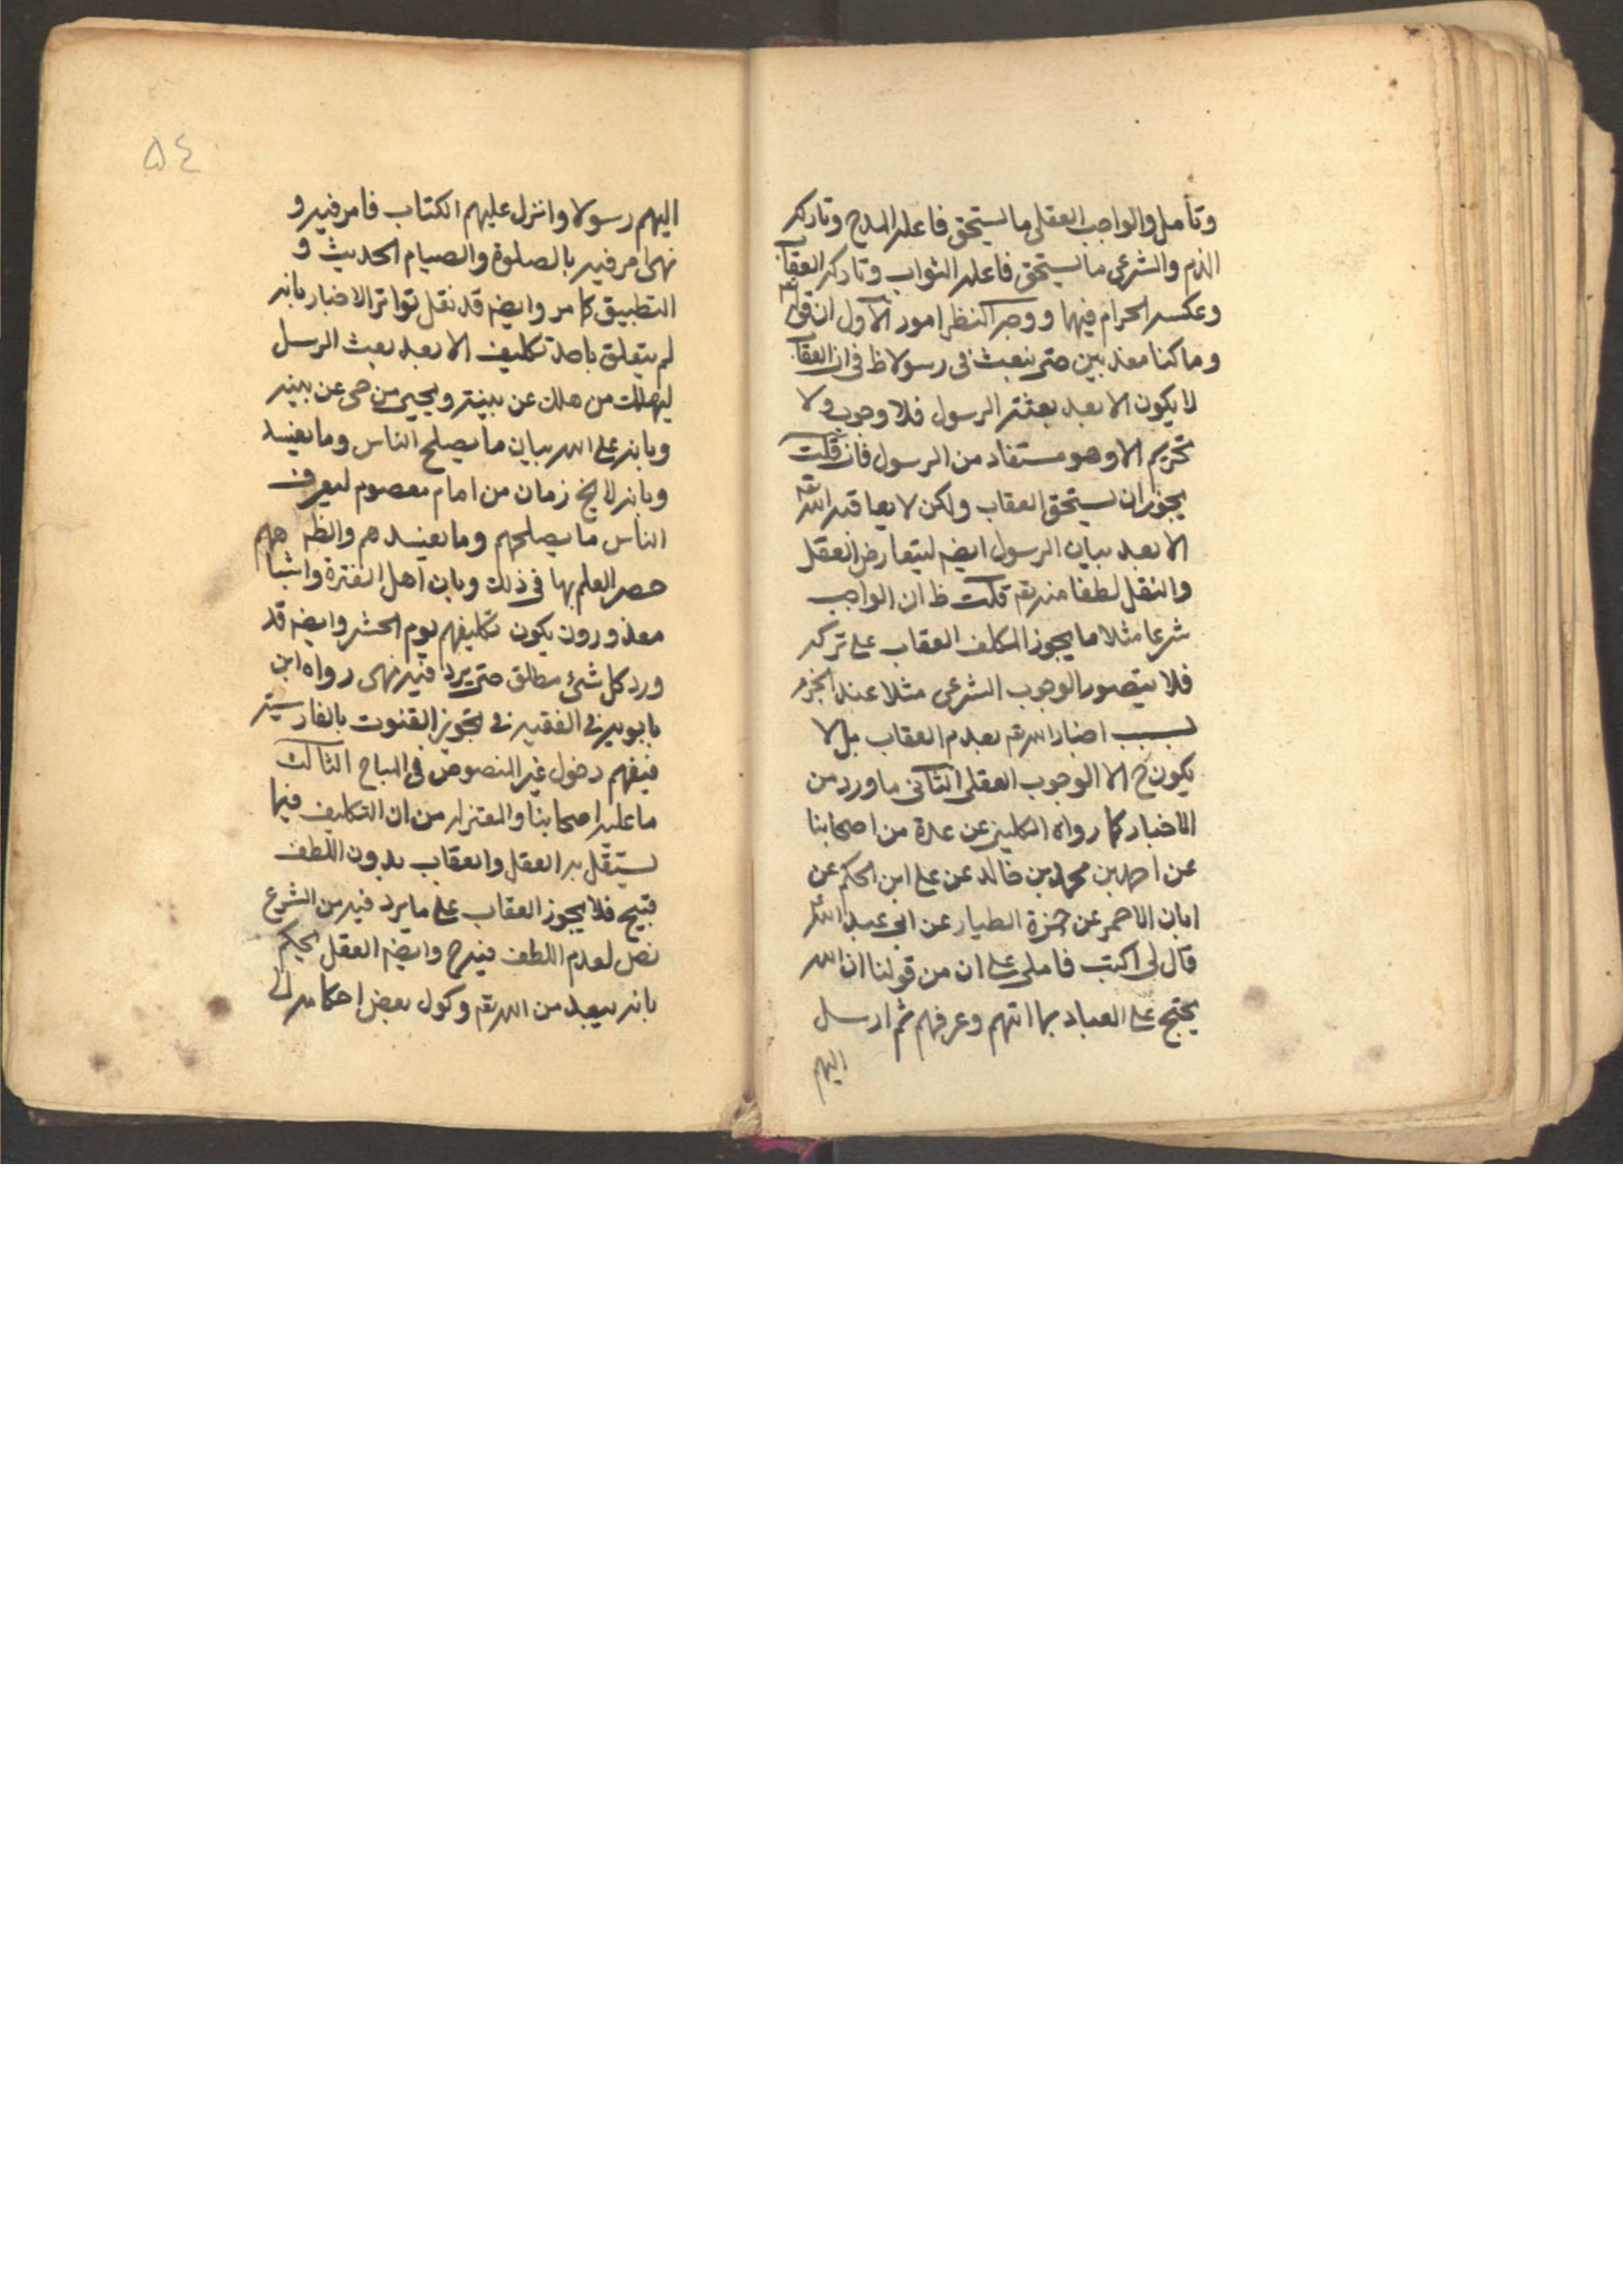 وتأمل والواجب العقلي ما يستحق فاعله المدح وتاركه
الذم والشرعي ما يستحق فاعله الثواب وتاركه العقاب
وعكسه الحرام فيهما ووجه النظر امور الاول ان قوله تع
وما كنا معذبين حتى نبعث في رسولا ظ في ان العقاب
لا يكون الا بعد بعثته الرسول فلا وجوب ولا
تحريم الا وهو مستفاد من الرسول فان قلت
يجوز ان يستحق العقاب ولكن لا يعاقبه الله تع
الا بعد بيان الرسول ايضه ليتعارض العقل
والنقل لطفا منه تع قلت ظ ان الواجب
شرعا مثلا ما يجوز المكلف العقاب على تركه
فلا يتصور الوجوب الشرعي مثلا عند الجزم
بسبب اخبار الله تع بعدم العقاب بل لا
يكون ح الا الوجوب العقلي الثاني ما ورد من
الاخبار كما رواه الكليني عن عدة من اصحابنا
عن احمد بن محمد بن خالد عن علي ابن الحكم عن
ابان الاحمر عن حمزة الطيار عن ابي عبد الله ع
قال لي اكتب فاملى علي ان من قولنا ان الله
يحتج على العباد بما اتهم وعرفهم ثم ارسل
اليهم
٥٤
اليهم رسولا وانزل عليهم الكتاب فامر فيه و
نهى امر فيه بالصلوة والصيام الحديث و
التطبيق كما مر وايضه قد نقل تواتر الاخبار بانه
لم يتعلق باحد تكليف الا بعد بعث الرسل
ليهلك من هلك عن بينة ويحيى من حى عن بينه
وبانه على الله بيان ما يصلح الناس وما يفسد
وبانه لا يخ زمان من امام معصوم ليعرف
الناس ما يصلحهم وما يفسدهم والظ
حصر العلم بها في ذلك وبان اهل الفترة واشباههم
معذورون يكون تكليفهم يوم الحشر وايضه قد
ورد كل شئ مطلق حتى يرد فيه نهى رواه ابن
بابويه في الفقيه في تجويز القنوت بالفارسية
فيفهم دخول غير المنصوص في المباح الثالث
ما عليه اصحابنا والمعتزله من ان التكليف فيما
يستقل به العقل والعقاب بدون اللطف
قبيح فلا يجوز العقاب على ما يرد فيه من الشرع
نص لعدم اللطف فيه ح وايضه العقل يحكم
بانه يبعد من الله تع وكول بعض احكامه الى